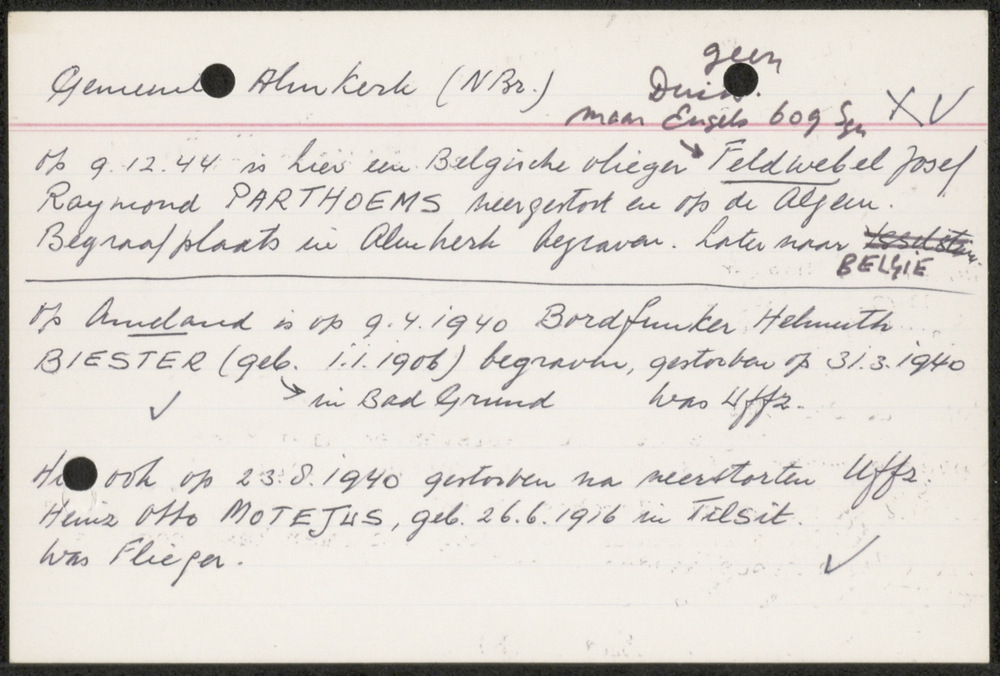 geen
Gemeente Almkerk (NBr.) Duits.
maar Engels 609 Sqn X V
op 9.12.44 is hier een Belgische vlieger Feldwebel Josef
Raymond PARTHOEMS neergestort en op de Algem.
Begraafplaats in Almkerk begraven. Later naar
BELGIE
op Ameland is op 9.4.1940 Bordfunker Helmuth
BIESTER (geb. 1.1.1906) begraven, gestorven op 31.3.1940
in Bad Grund Was Uffz.
Hier ook op 23.8.1940 gestorven na neerstorten Uffz.
Heinz Otto MOTEJUS, geb. 26.6.1916 in Tilsit.
Was Flieger.